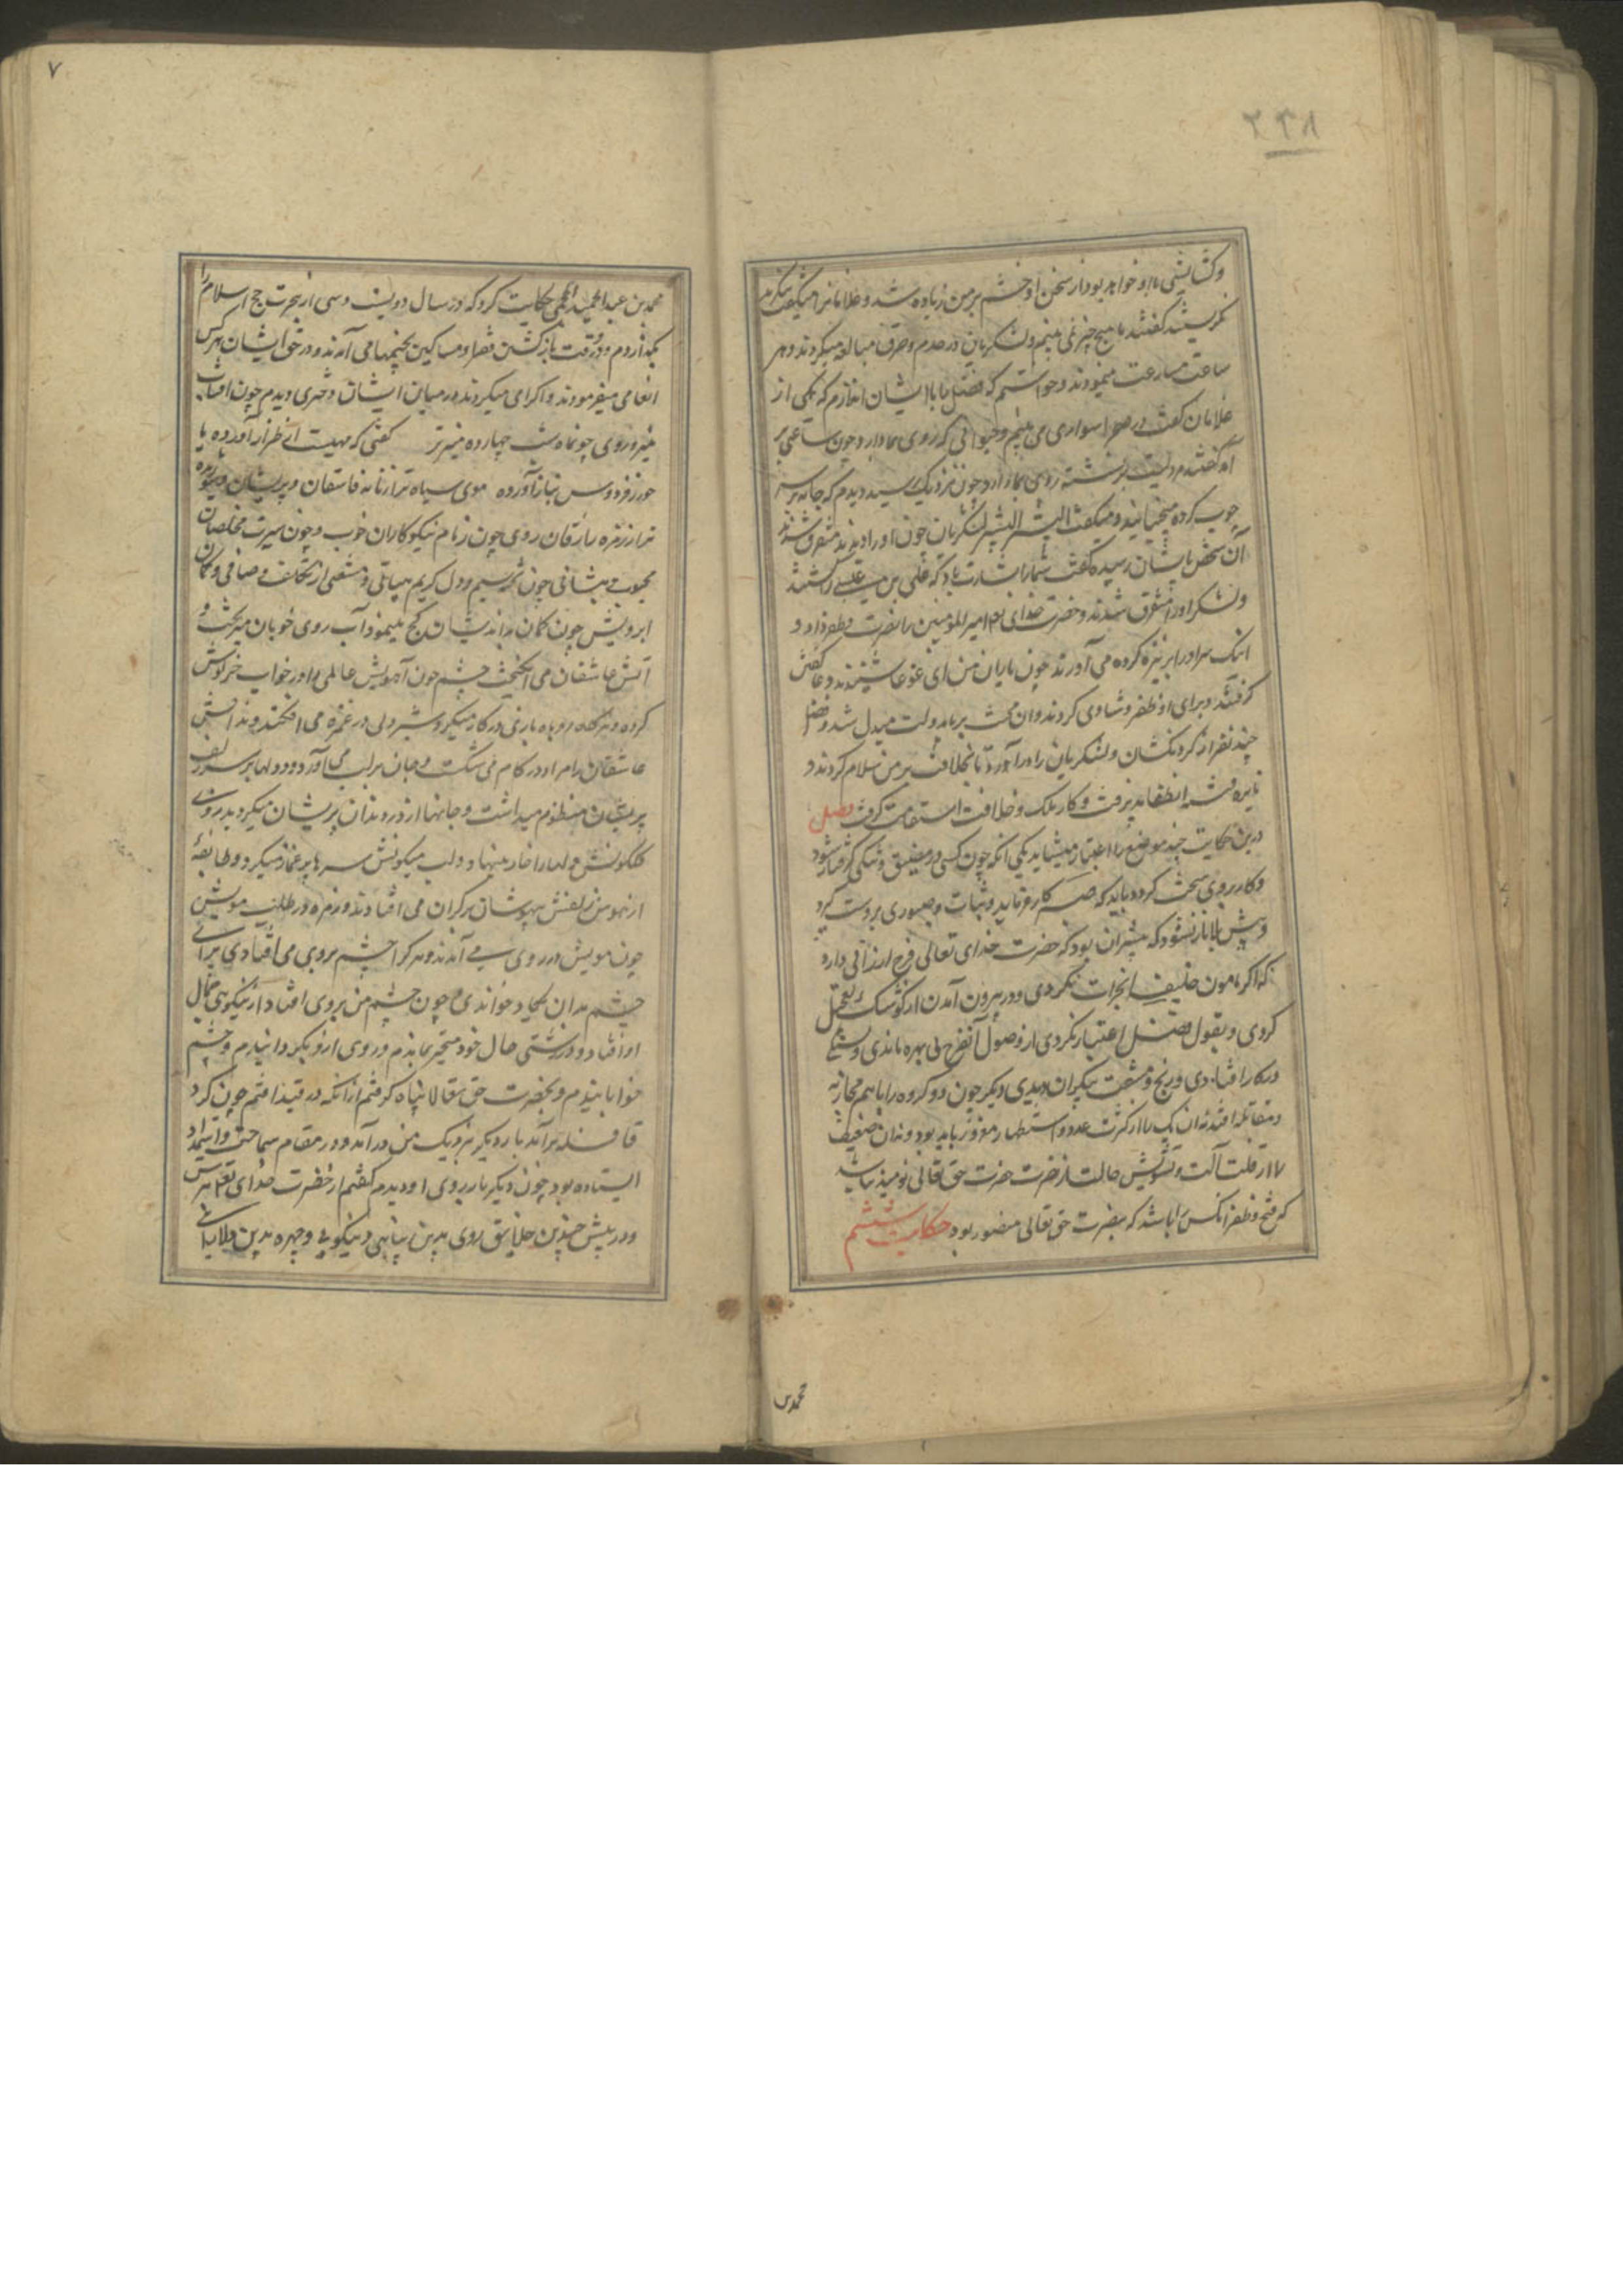 ۲۳۸
وکشایشی ما را و خواهد بود از سخن او خشم بر من زیاده شد و غلامانرا میگفت بنگرید
نگریستند گفتند ما هیچ چیز نمی بینیم و لشکریان در هدم و حرق مبالغه میکردند و هر
ساعت مسارعت مینمودند و خواستم که فضل را با ایشان اندازم که یکی از
غلامان گفت در صحرا سواری می بینم و حیوانی که روی بما دارد چون ساعتی بر
آمد گفتند مردیست برنشسته روی بما دارد چون نزدیک رسید دیدم که جامه بر سر
چوب کرده میجنبانید و میگفت البشر البشر لشکریان چون او را دیدند متفرق شدند
آن شخص بایشان رسیده گفت شما را بشارت باد که علی بن عیسی را کشتند
و لشکر او را متفرق شدند و حضرت خدای تعا امیر المومنین را نصرت و ظفر داد و
اینک سر او را بر نیزه کرده می آورند چون یاران من ای غوغا شنیدند دعا گفتن
گرفتند و برای او ظفر و شادی کردند و ان محنت بر ما بدولت مبدل شد و فضل
چند نفر از گردنکشان و لشکریان را در آورد تا بخلافت بر من سلام کردند و
نایره فتنه انطفا پذیرفت و کار ملک و خلافت استقامت گرفت فصل
درین حکایت چند موضع را اعتبار میشاید یکی آنکه چون کسی در مضیق و تنگی گرفتار شود
و کار بروی سخت گردد باید که صبر کار فرماید و ثبات و صبوری بر دست گیرد
و پیش بلا باز نشود که بیشتر آن بود که حضرت خدای تعالی فرج ارزانی دارد
که اگر مامون خلیفه انجرات نکردی و در بیرون آمدن از کوشک تعجیل
کردی و بقول فضل اعتبار نکردی از وصول آنفرح بی بهره ماندی و سستی
در کار افتادی و رنج و مشقت بیکران دیدی دیگر چون دو گروه را با هم محاربه
و مقاتله افتد نه ان یک را از کثرت عدد و استظهار مغرور باید بود و نه ان ضعیف
را از قلت آلت و تشویش حالت از نصرت حضرت حق تعالی نومید باشید
که فتح و ظفر انکس را باشد که بنصرت حق تعالی منصور بود حکایت ششم
محمد بن
۷
محمد بن عبدالحمید الجمحی حکایت کرد که در سال دویست و سی از هجرت حج اسلام را
بگذاردم و در وقت بازگشتن فقرا و مساکین بخیمها می آمدند و در حق ایشان هر کس
انعامی میفرمودند و اکرامی میکردند در میان ایشان دختری دیدم چون افتاب
منیر و روی چو ماه شب چهارده منیر تر گفتی که مهیست از طراز آورده یا
حور ز فردوس نیاز آورده موی سیاه تر از نامه فاسقان و پریشان و شوریده
تر از زمره سارقان روی چون نام نیکوکاران خوب و چون سیرت مخلصان
محبوب پیشانی چون نفس نسیم و دل کریم بی تلبی و متصفی از تکلف و صافی و کمان
ابرویش چون کمان بداندیشان کج مینمود آب روی خوبان میریخت و
آتش عاشقان می انگیخت چشم چون آهویش عالمی را در خواب خرگوش
کرده و بنگاه روباه بازی در کار میگرد و شیر دلی در غمزه می افکند و دندانش
عاشقان را مراد در کام می شکست و جان بر لب می آورد و دلها بر سر زلف
پریشان منظوم میداشت و جانها از در دندان پریشان میگردید روی
گلگونش دلها را خار مینهاد و لب میگونش سرها پر خمار میکرد و طایفه
از نهوس زلفش بیهوشان بر کران می افتادند و زمره در طلب مویش
چون مویش در روی می آمدند و هر کرا چشم بروی می افتادی برای
چشم بد ان یکاد خواندی و چون چشم من بروی افتاد از نیکویی جمال
او افتاد و در زشتی حال خود متحیر بماندم و روی از وی بگردانیدم و چشم
فرا باشیدم و بحضرت حق تعالا پناه گرفتم از آنکه در قید افتم چون گرد
قافله برآمد بار دیگر بنزدیک من در آمد و در مقام سماحت و استمداد
ایستاده بود چون دیگر بار روی او دیدم گفتم از حضرت خدای تعا بترس
و در پیش چندین خلایق روی بدین زیبایی و نیکویی و چهره بدین دلارایی